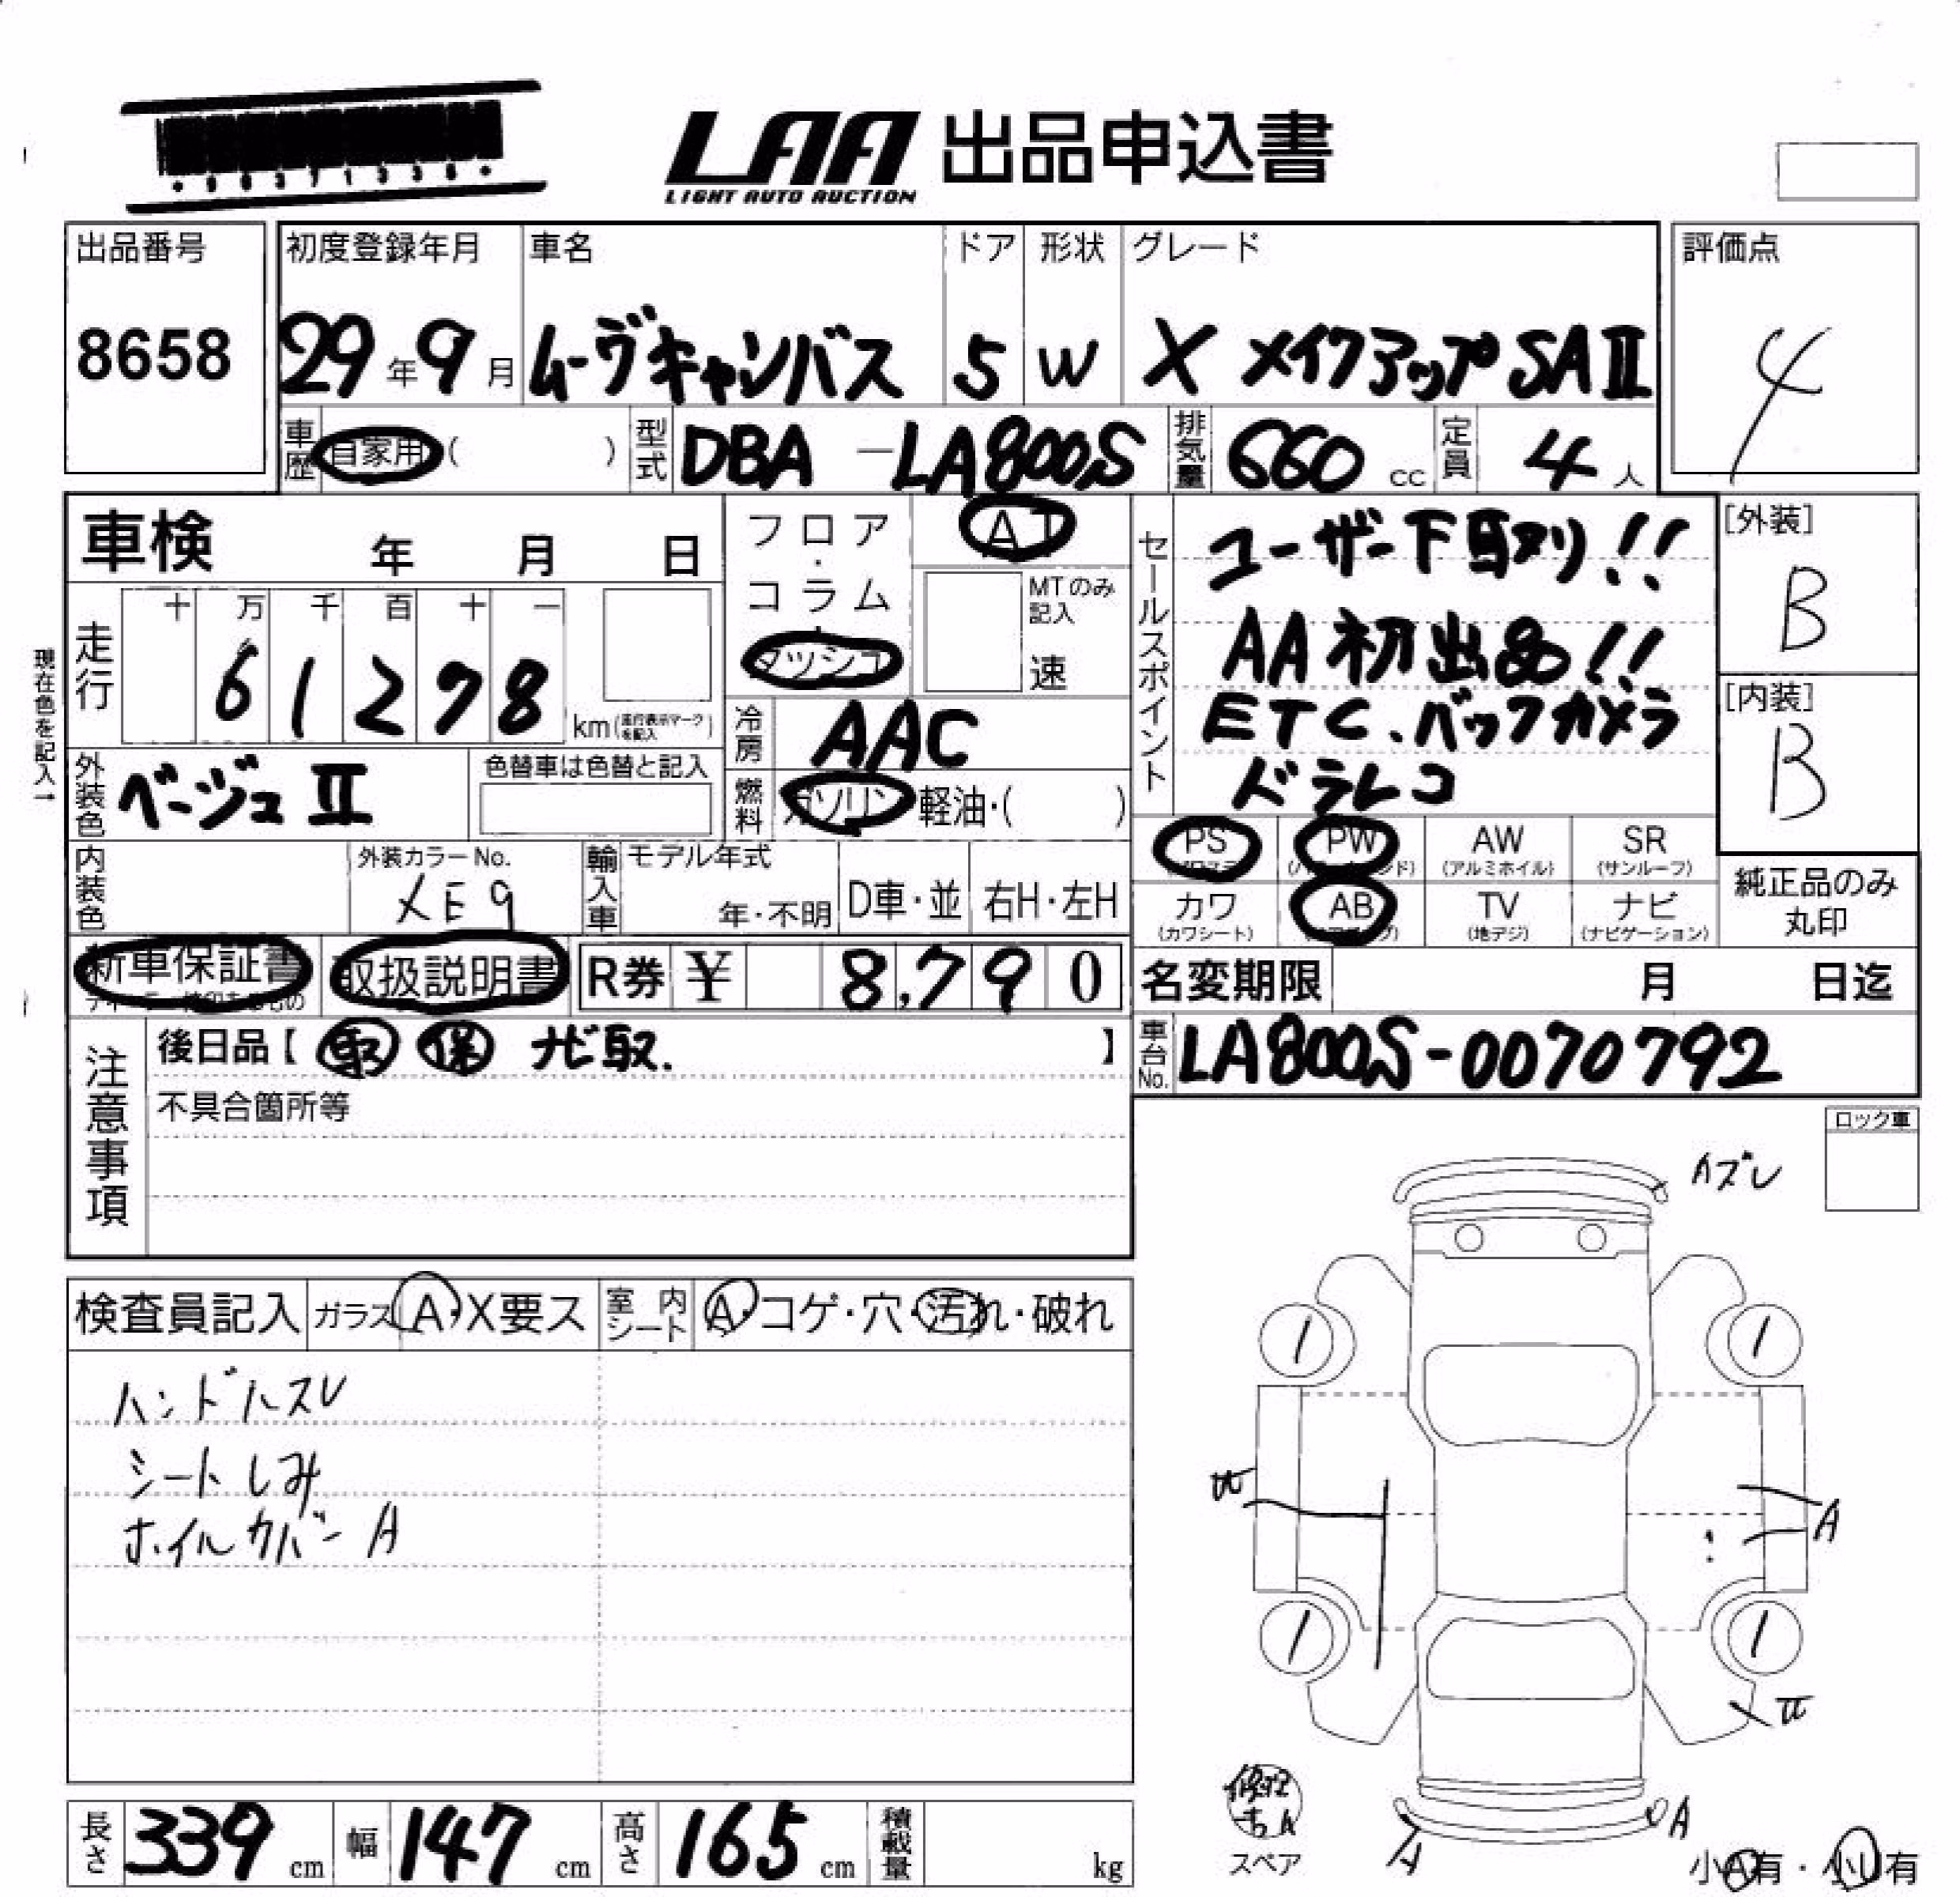 LAA 出品申込書
LIGHT AUTO AUCTION
出品番号
8658
初度登録年月
29年9月
車名
ムーヴキャンバス
ドア
5
形状
W
グレード
X メイクアップSAⅡ
評価点
4
車歴 自家用( )
型式 DBA-LA800S
排気量 660cc
定員 4人
車検 年 月 日
フロア・コラム・ダッシュ
AT
MTのみ記入
速
セールスポイント
ユーザー下取り!!
AA初出品!!
ETC、バックカメラ
ドラレコ
[外装]
B
[内装]
B
現在色を記入→
走行
十 万 千 百 十 一
6 1 2 7 8 km(走行表示マークを記入)
冷房 AAC
外装色 ベージュⅡ
色替車は色替と記入
燃料 ガソリン 軽油・( )
PS PW AW SR
(アルミホイル) (サンルーフ)
カワ AB TV ナビ
(カワシート) (地デジ) (ナビゲーション)
純正品のみ丸印
内装色
外装カラーNo.
XE9
輸入車
モデル年式
年・不明
D車・並
右H・左H
新車保証書
取扱説明書
R券 ¥ 8,790
名変期限 月 日迄
車台No. LA800S-0070792
注意事項
後日品【 取 保 ナビ取. 】
不具合箇所等
ロック車
検査員記入
ガラス A・X要ス
室内シート A・コゲ・穴・汚れ・破れ
ハンドルスレ
シートしみ
ホイルカバーA
カズレ
A
A
A
スペア
小A有・小U有
長さ 339cm
幅 147cm
高さ 165cm
積載量 kg